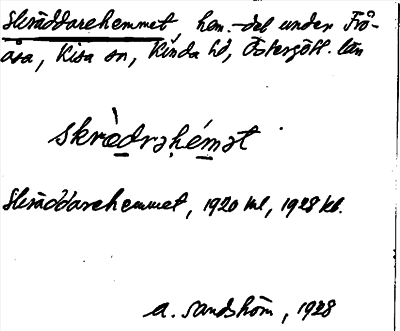 Skräddarehemmet, hem.-del under Frö-
åsa, Kisa sn, Kinda hd, Östergötl. län
skrὲdrəhémət
Skräddarehemmet, 1920 ml, 1928 kb.
A. Sandström, 1928